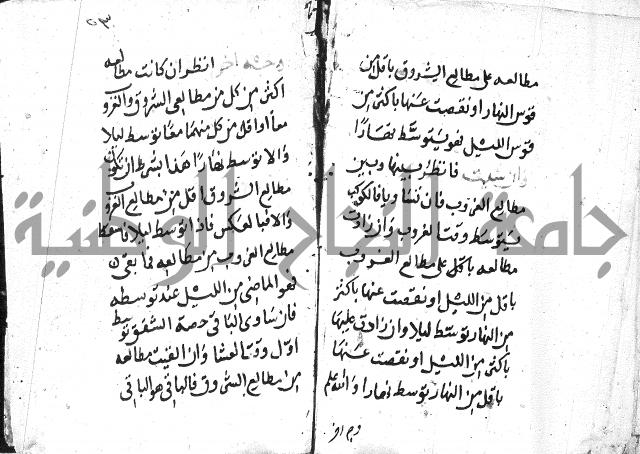 مطالعه على مطالع الشروق باقل من
قوس النهار او نقصت عنها باكثر من
قوس الليل فهو يتوسط نهارا
وان شئت فانظر بينها وبين
مطالع الغروب فان تساويا فالكوكب
يتوسط وقت الغروب وان زادت
مطالعه على مطالع الغروب
باقل من الليل او نقصت عنها باكثر
من النهار توسط ليلا وان زادت عليها
باكثر من الليل او نقصت عنها
باقل من النهار توسط نهارا والله اعلم
وجه اخر
٥٣
وجه اخر انظر ان كانت مطالعه
اكثر من كل من مطالعي الشروق والغروب
معا او اقل من كل منهما معا توسط ليلا
والا توسط نهارا هذا بشرط ان تكون
مطالع الشروق اقل من مطالع الغروب
والا فبالعكس فاذا توسط ليلا فاسقط
مطالع الغروب من مطالعه فما بقي
فهو الماضي من الليل عند توسطه
فان ساوى الباقي حصة الشفق توسط
اول وقت العشا وان القيت مطالعه
من مطالع الشروق فالباقي هو الباقي
جامعة النجاح الوطنية